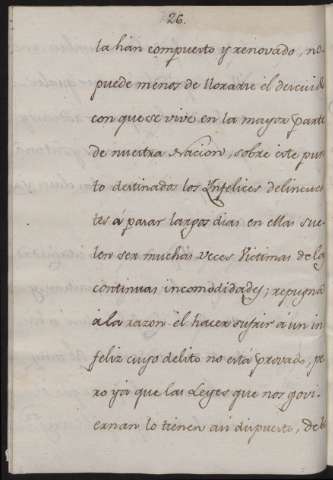 26.
la han compuesto y renovado, no
puede menos de llorarse el descuido
con que se vive en la mayor parte
de nuestra Nacion, sobre este pun
to destinados los Infelices delincuen
tes á pasar largos dias en ellas sue
len ser muchas veces Victimas de las
continuas incomodidades; repugna
a la razon el hacer sufrir á un in
feliz cuyo delito no está provado, pe
ro yá que las Leyes que nos govi
ernan lo tienen asi dispuesto, de